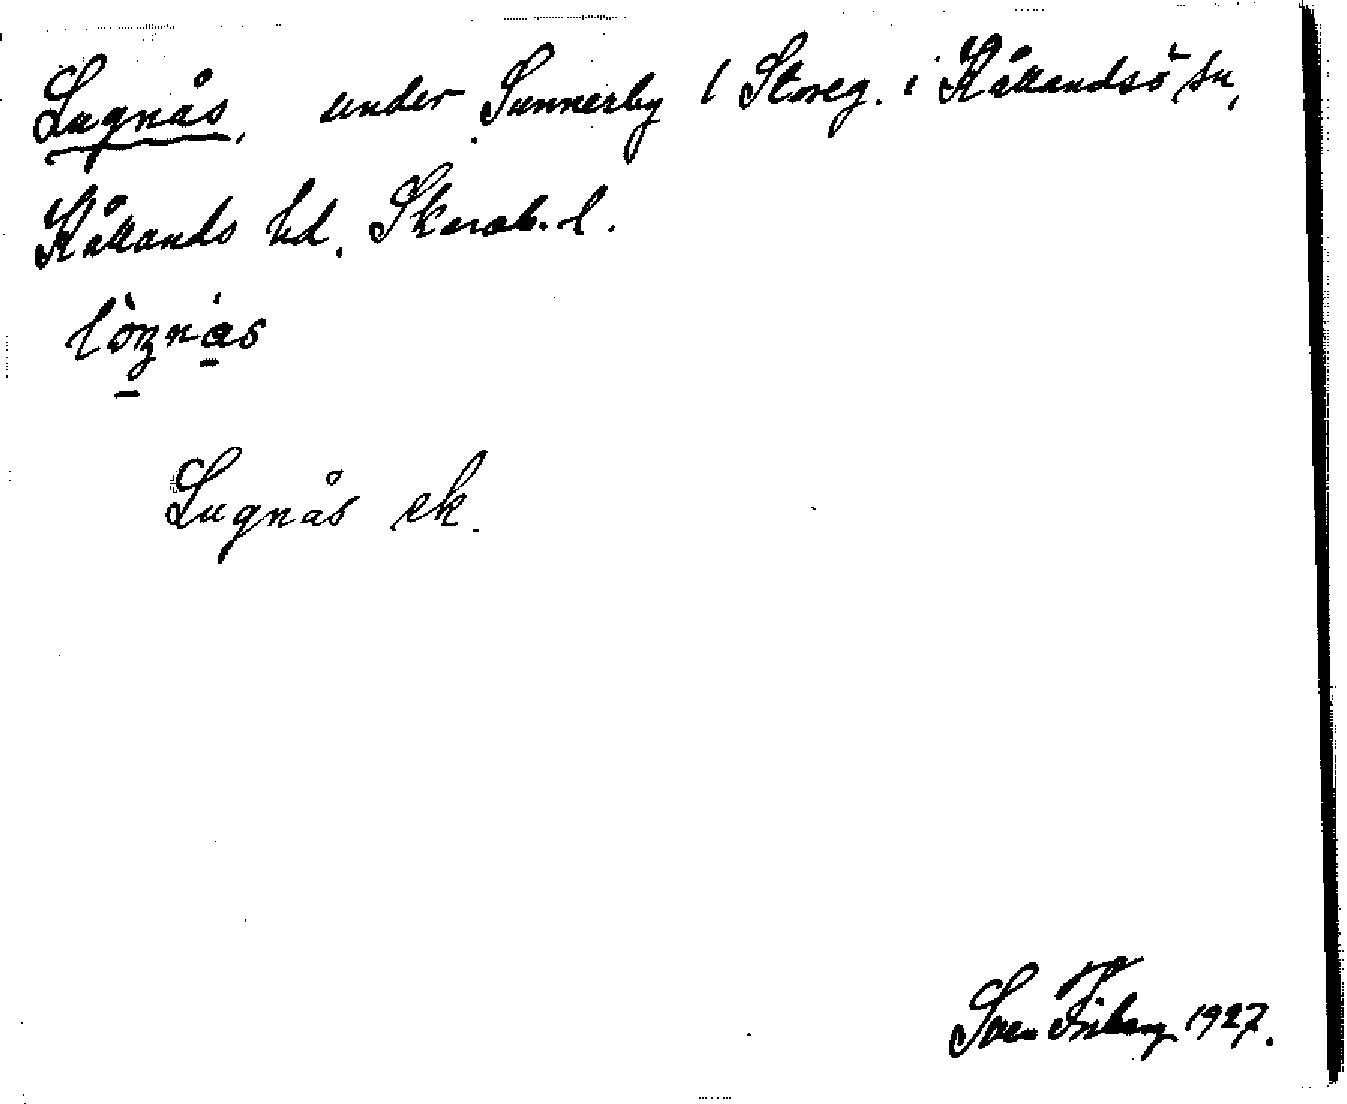 Lugnås, under Sunnerby 1 Storeg. i Kållandsö sn,
Kållands hd. Skarab. l.
Lugnås ek.
Sven Friberg 1927.